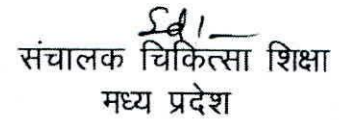 Sd/-
संचालक चिकित्सा शिक्षा
मध्य प्रदेश